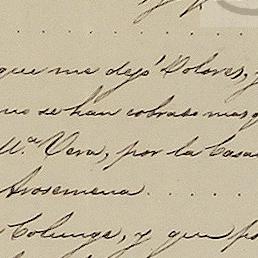 que me dejó Dolores, y
que se han cobrado mas q
M.ª Vera, por la Casa
Arosemena . . . . .
Colunge, y que po